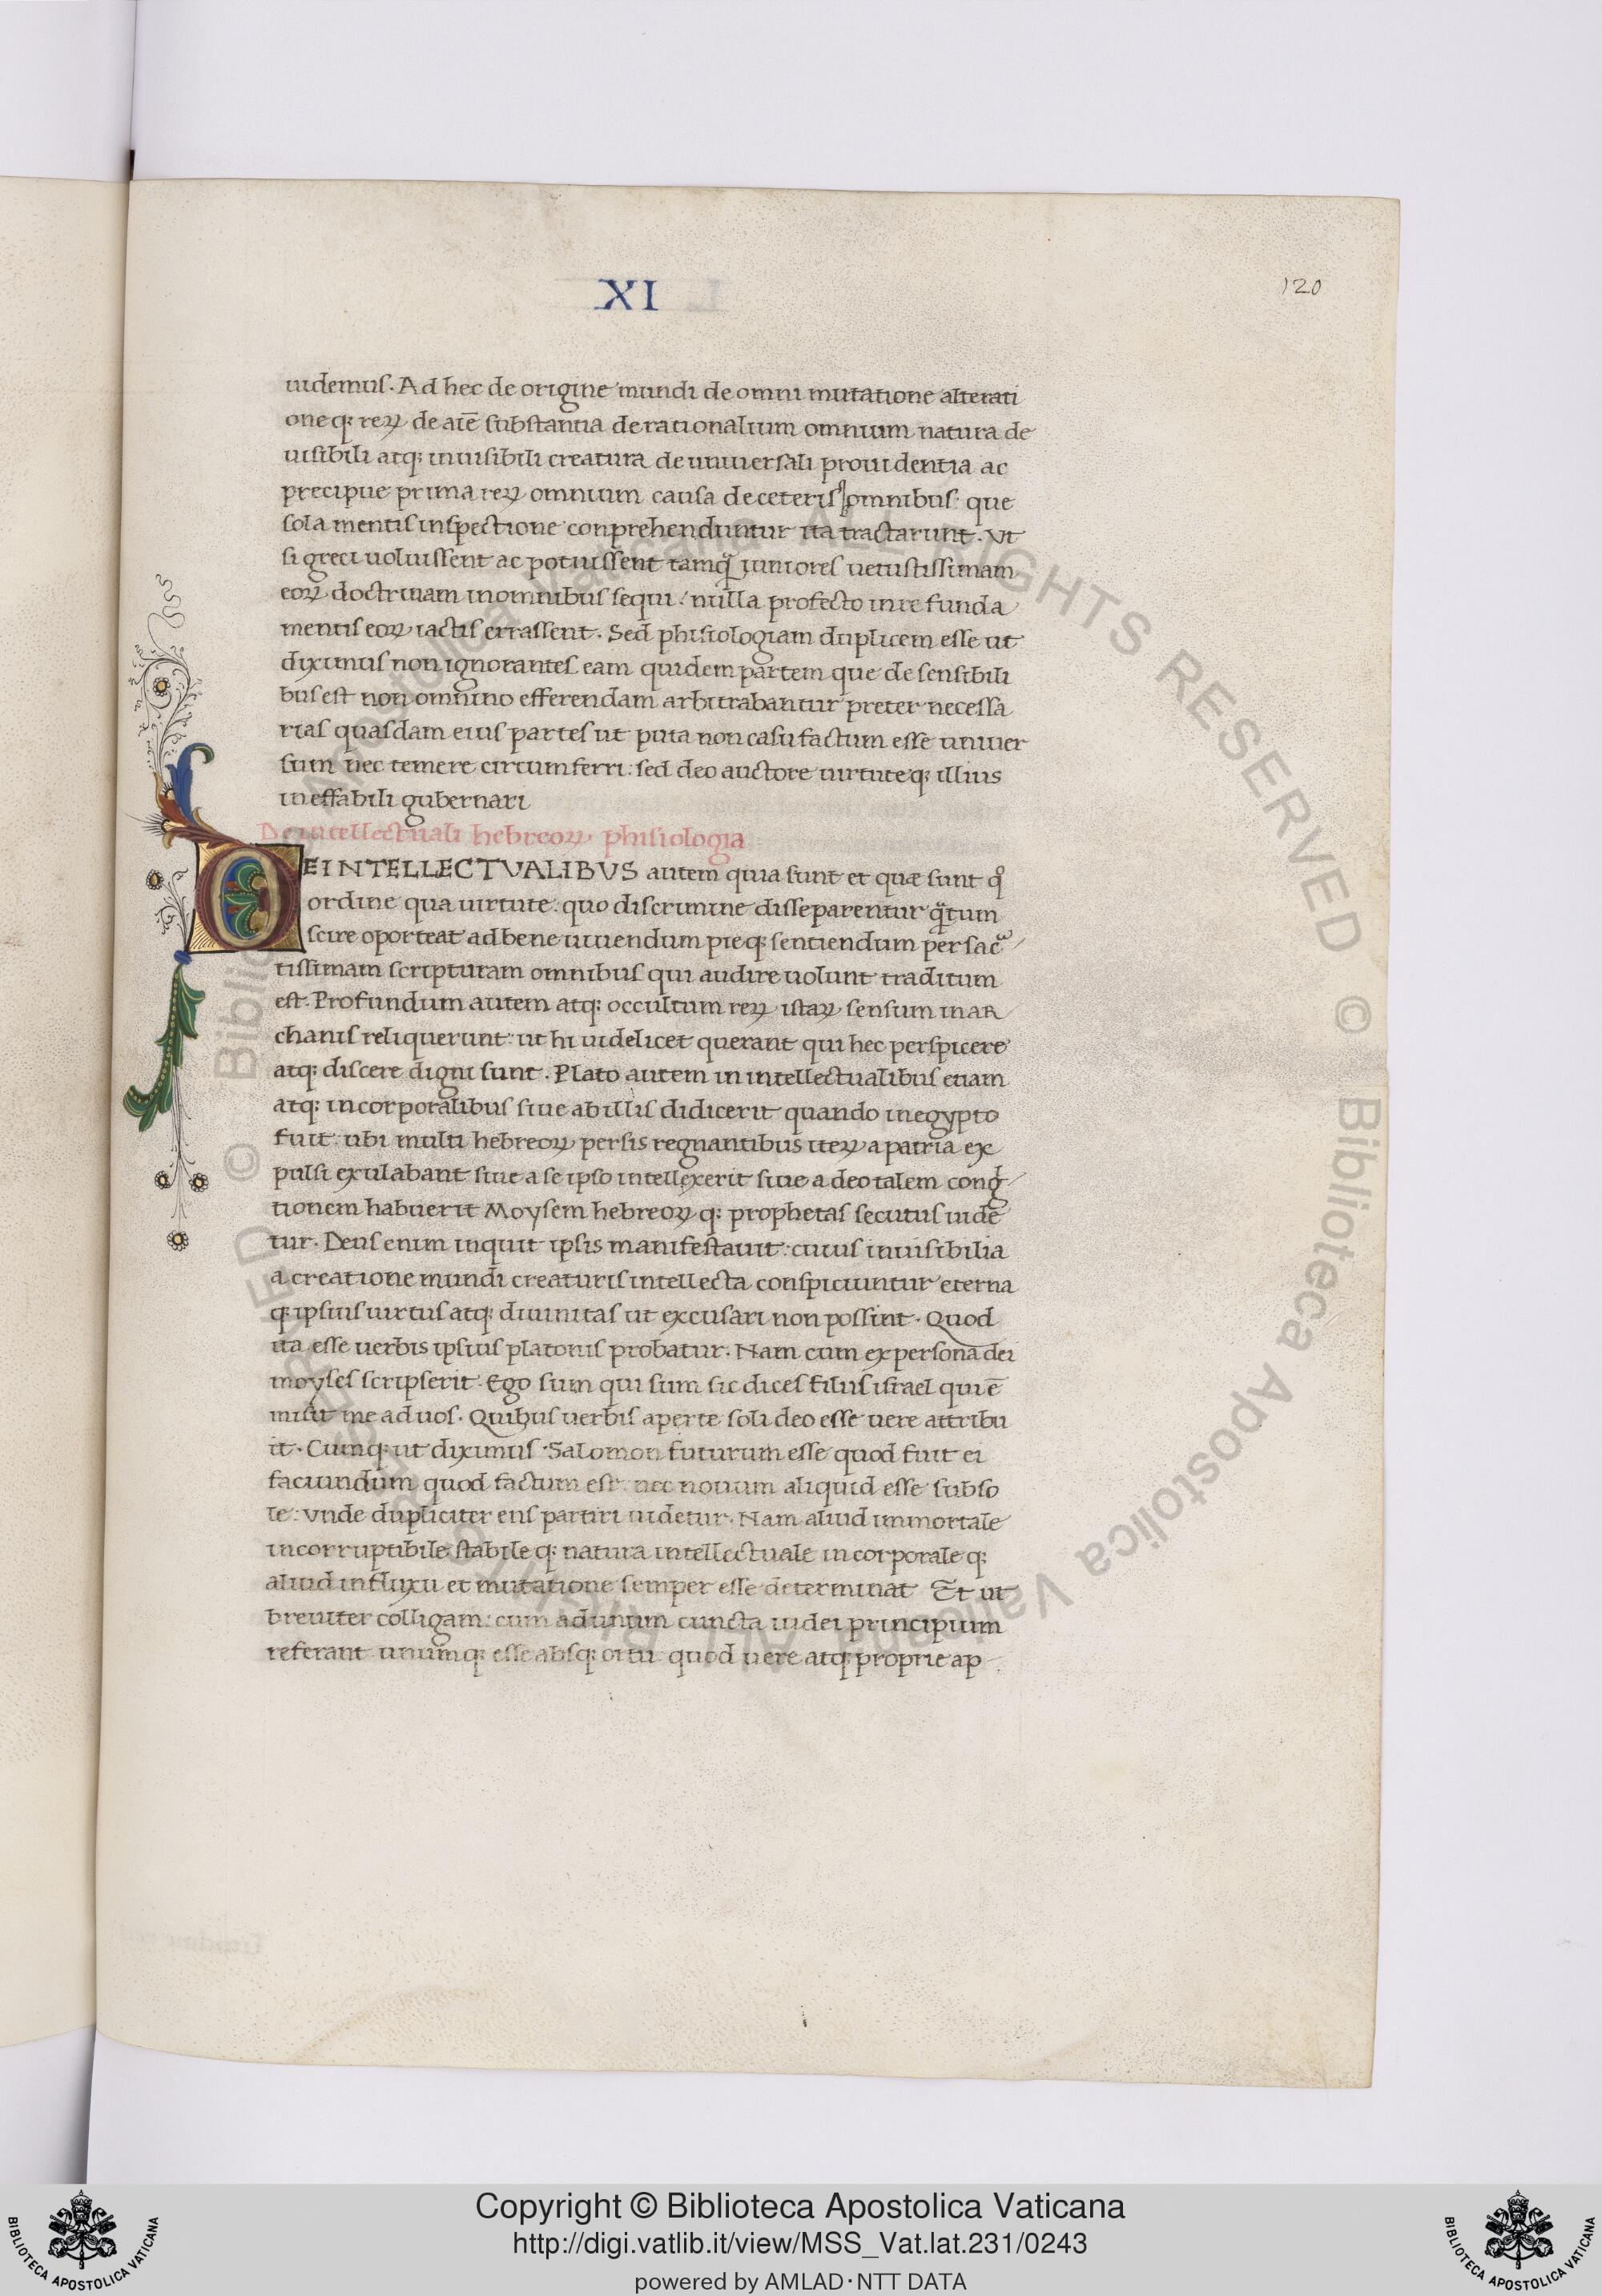 XI
120
uidemus. Ad hec de origine mundi de omni mutatione alterati
oneq; reꝝ de aīe substantia de rationalium omnium natura de
uisibili atq; inuisibili creatura de uniuersali prouidentia ac
precipue prima reꝝ omnium causa de ceteris omnibus que
sola mentis inspectione conprehenduntur ita tractarunt. Vt
si greci uoluissent ac potuissent tamq̃ iuniores uetustissimam
eoꝝ doctrinam in omnibus sequi: nulla profecto in re funda
mentis eoꝝ iactis errassent. Sed phisiologiam duplicem esse ut
diximus non ignorantes eam quidem partem que de sensibili
bus est non omnino efferendam arbitrabantur preter necessa
rias quasdam eius partes ut puta non casu factum esse uniuer
sum nec temere circumferri: sed deo auctore uirtuteq; illius
ineffabili gubernari
De intellectuali hebreoꝝ phisiologia
DE INTELLECTVALIBVS autem quia sunt et quæ sunt qͦ
ordine qua uirtute: quo discrimine disseparentur q̃tum
scire oporteat ad bene uiuendum pieq; sentiendum per sac̃
tissimam scripturam omnibus qui audire uolunt traditum
est. Profundum autem atq; occultum reꝝ istaꝝ sensum in ar
chanis reliquerunt: ut hi uidelicet querant qui hec perspicere
atq; discere digni sunt. Plato autem in intellectualibus etiam
atq; incorporalibus siue ab illis didicerit quando in egypto
fuit: ubi multi hebreoꝝ persis regnantibus iteꝝ a patria ex
pulsi exulabant siue a se ipso intellexerit siue a deo talem cong
tionem habuerit Moysem hebreoꝝ q; prophetas secutus uide
tur. Deus enim inquit ipsis manifestauit: cuius inuisibilia
a creatione mundi creaturis intellecta conspiciuntur eterna
q; ipsius uirtus atq; diuinitas ut excusari non possint. Quod
ita esse uerbis ipsius platonis probatur. Nam cum ex persona dei
moyses scripserit. Ego sum qui sum sic dices filiis israel qui ē
misit me ad uos. Quibus uerbis aperte soli deo esse uere attribu
it. Cumq; ut diximus Salomon futurum esse quod fuit et
faciundum quod factum est: nec nouum aliquid esse sub so
le: vnde dupliciter ens partiri uidetur. Nam aliud immortale
incorruptibile stabile q; natura intellectuale incorporale q;
aliud in fluxu et mutatione semper esse determinat Et ut
breuiter colligam: cum ad unum cuncta ui dei principium
referant unumq; esse absq; ortu: quod uere atq; proprie ap
Copyright © Biblioteca Apostolica Vaticana
http://digi.vatlib.it/view/MSS_Vat.lat.231/0243
powered by AMLAD·NTT DATA
BIBLIOTECA APOSTOLICA VATICANA
BIBLIOTECA APOSTOLICA VATICANA
© Biblioteca Apostolica Vaticana ALL RIGHTS RESERVED © Biblioteca Apostolica Vaticana ALL RIGHTS RESERVED